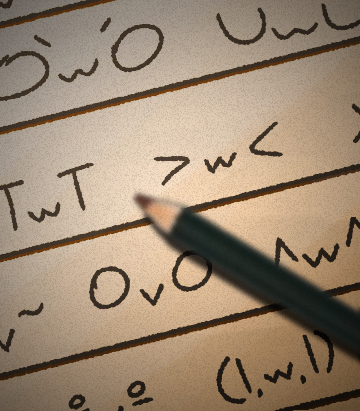 ÒwÓ UwU
TwT >w< 
~ OvO ^w^
(I.w.I)